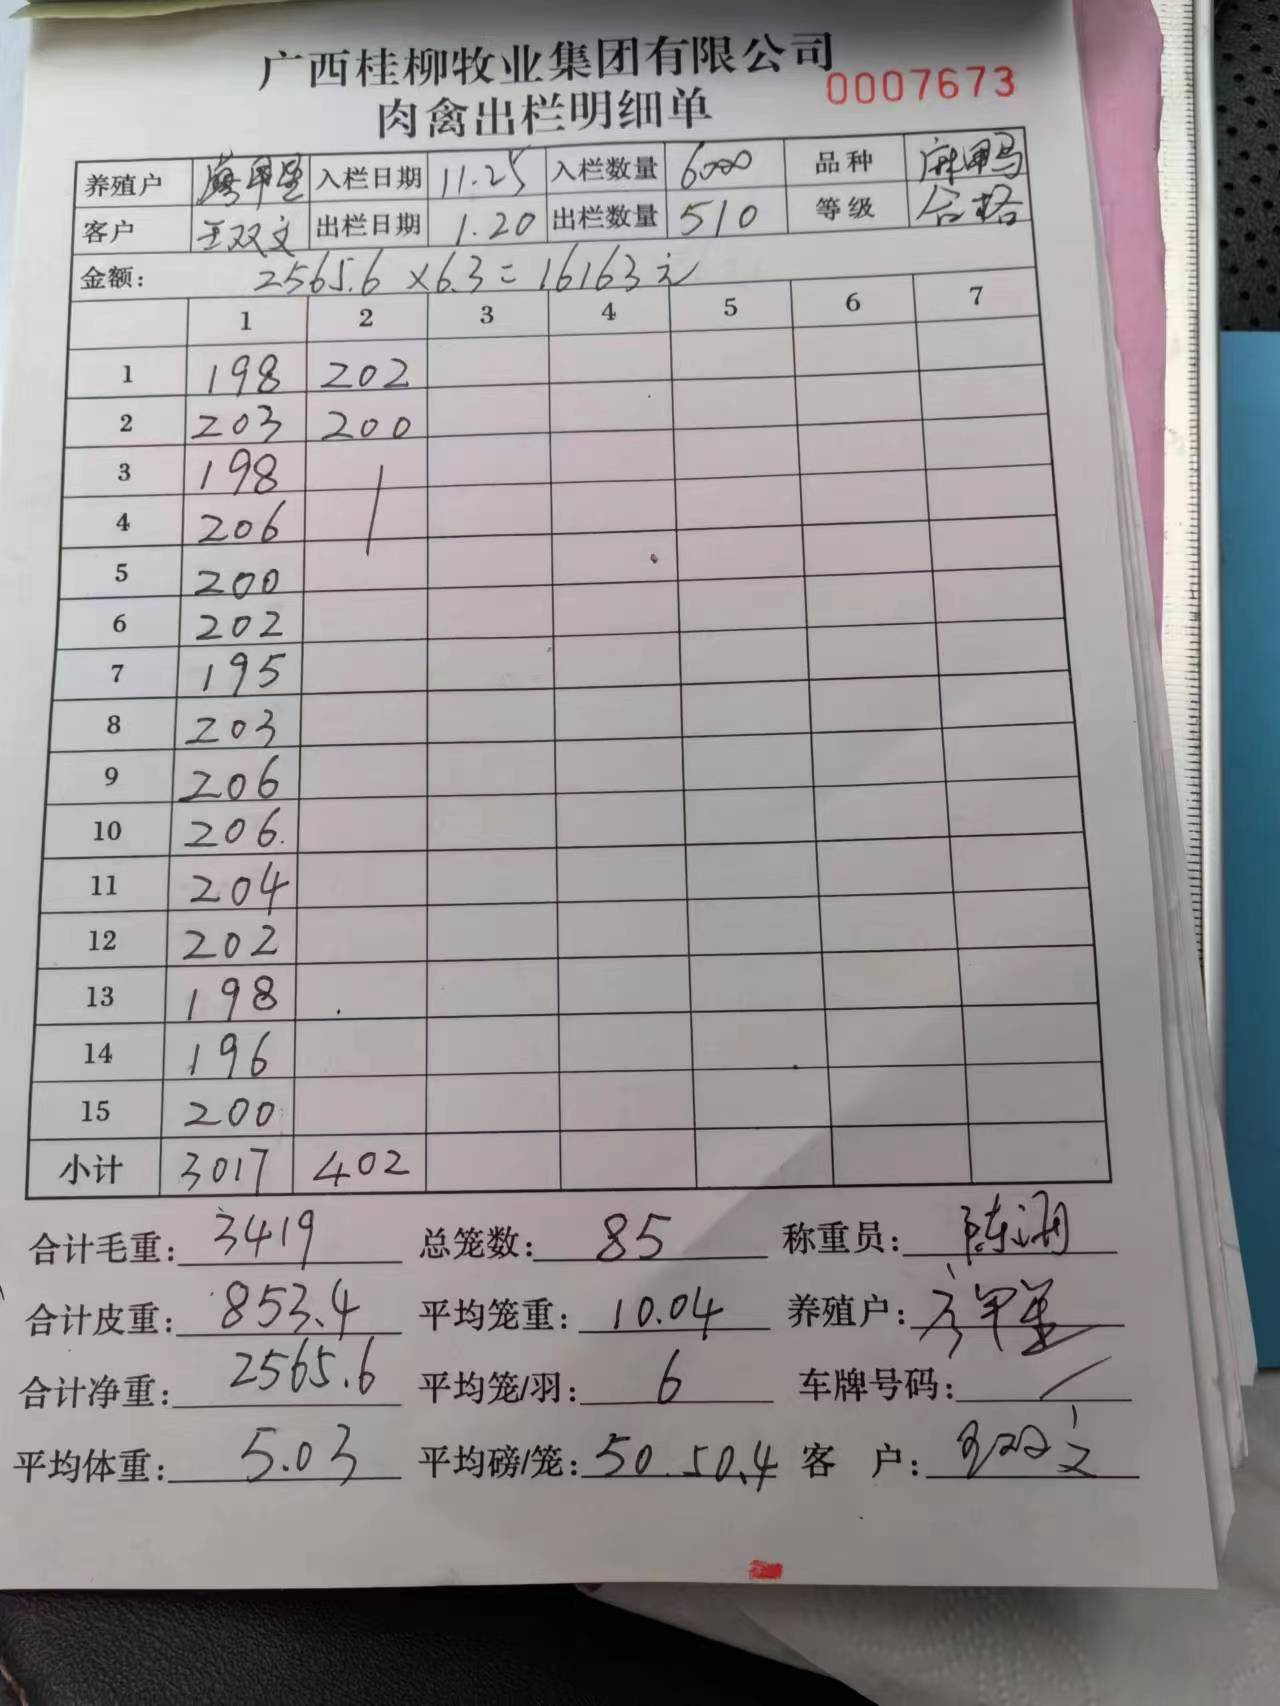 广西桂柳牧业集团有限公司
肉禽出栏明细单 0007673
养殖户 入栏日期 11.25 入栏数量 6000 品种
客户 王双文 出栏日期 1.20 出栏数量 510 等级 合格
金额: 2565.6 ×6.3= 16163元
1 2 3 4 5 6 7
1 198 202
2 203 200
3 198
4 206
5 200
6 202
7 195
8 203
9 206
10 206.
11 204
12 202
13 198
14 196
15 200
小计 3017 402
合计毛重: 3419 总笼数: 85 称重员:
合计皮重: 853.4 平均笼重: 10.04 养殖户:
合计净重: 2565.6 平均笼/羽: 6 车牌号码: /
平均体重: 5.03 平均磅/笼: 50.50.4 客 户: 王双文